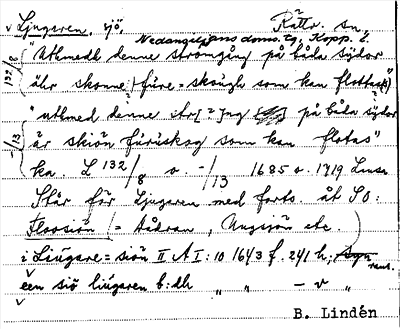 v Ljugaren, sjö, Rättv. sn,
Nedansiljans doms. tg. Kopp. l.
132/8 "Uthmedh denne strömgång på båda sydor
ähr skonne füre-skough som kan flottas"
-/13 "uthmed denne på båda sydor
är skiön füruskog som kan flotas"
ka. L 132/8 o. -/13 1685 o. 1719
Står för Ljugaren med forts. åt SO:
Floosiön (= Aådran, Ungsjön etc.)
i Liügare = siön II A I: 10 1643 f. 241 h;
een siö liügaren b:dh " " - v "
B. Lindén